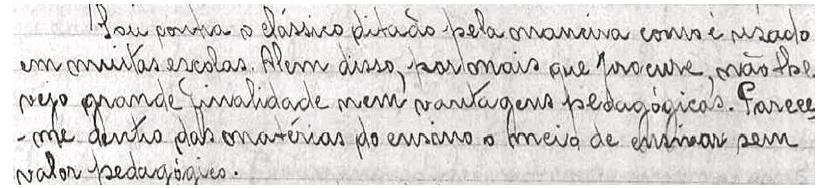 Sou contra o clássico ditado pela maneira como é usado
em muitas escolas. Alem disso, por mais que procure, não lhe
vejo grande finalidade nem vantagens pedagógicas. Parece
-me dentro das matérias do ensino o meio de ensinar sem
valor pedagógico.